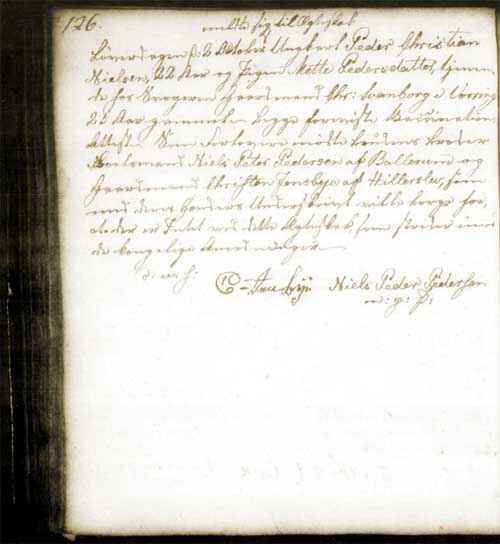 126.
meldte sig til Ægteskab
Løverdagen d: 2 October Ungkarl Peder Christian
Nielsen, 22 Aar og Pigen Mette Pedersdatter, tjenen-
de hos Svogeren Huusmand Chr: Svanborg i
23 Aar gammel. Begge foreviste Vaccinations
Attest. Som Forlovere mødte Brudens Broder
Boelsmand Niels Peter Pedersen af Ballerum og
Huusmand Christen Jensbye af Hillerslev, som
med deres Hænders Underskrivt ville borge for,
at der er Intet ved dette Ægteskab, som strider imod
de kongelige Anordninger
d. u. s:
C - Jens Byi Niels Peder Pedersen
m: p: P: